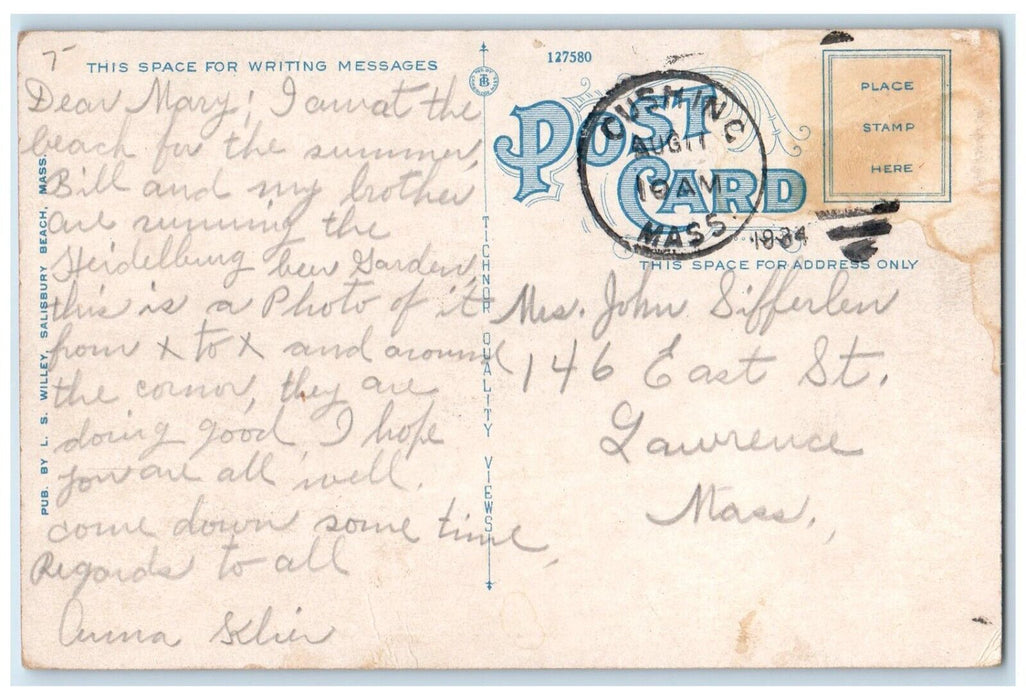 7
THIS SPACE FOR WRITING MESSAGES
Dear Mary; I am at the
beach for the summer,
Bill and my brother
are running the
Heidelburg beer Garden,
this is a Photo of it
from x to x and around
the cornor, they are
doing good, I hope
you are all well.
come down some time,
Regards to all
Anna Klier
PUB. BY L. S. WILLEY, SALISBURY BEACH, MASS.
TICHNOR QUALITY VIEWS
127580
POST CARD
CUSHING
AUG 11
10 AM
MASS
1934
PLACE
STAMP
HERE
THIS SPACE FOR ADDRESS ONLY
Mrs. John Sifferlen
146 East St.
Lawrence
Mass.